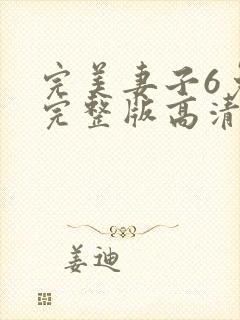 完美妻子6
完整版高清
姜迪